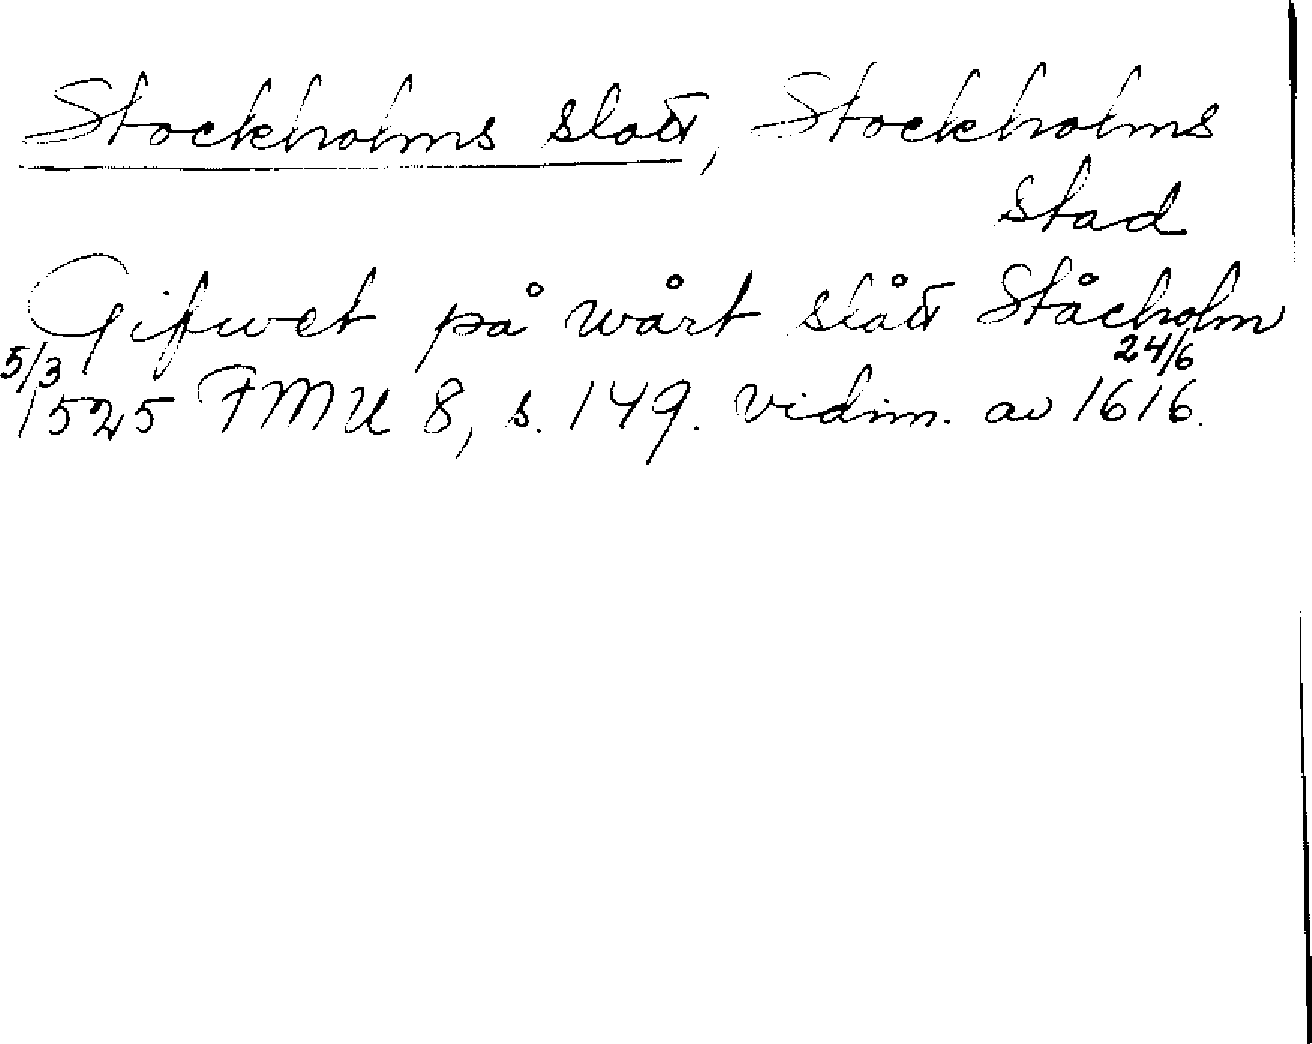 Stockholms slott, Stockholms
stad
Gifwet på wårt slått Ståcholm
5/3 1525 FMU 8, s. 149. vidim. av 24/6 1616.